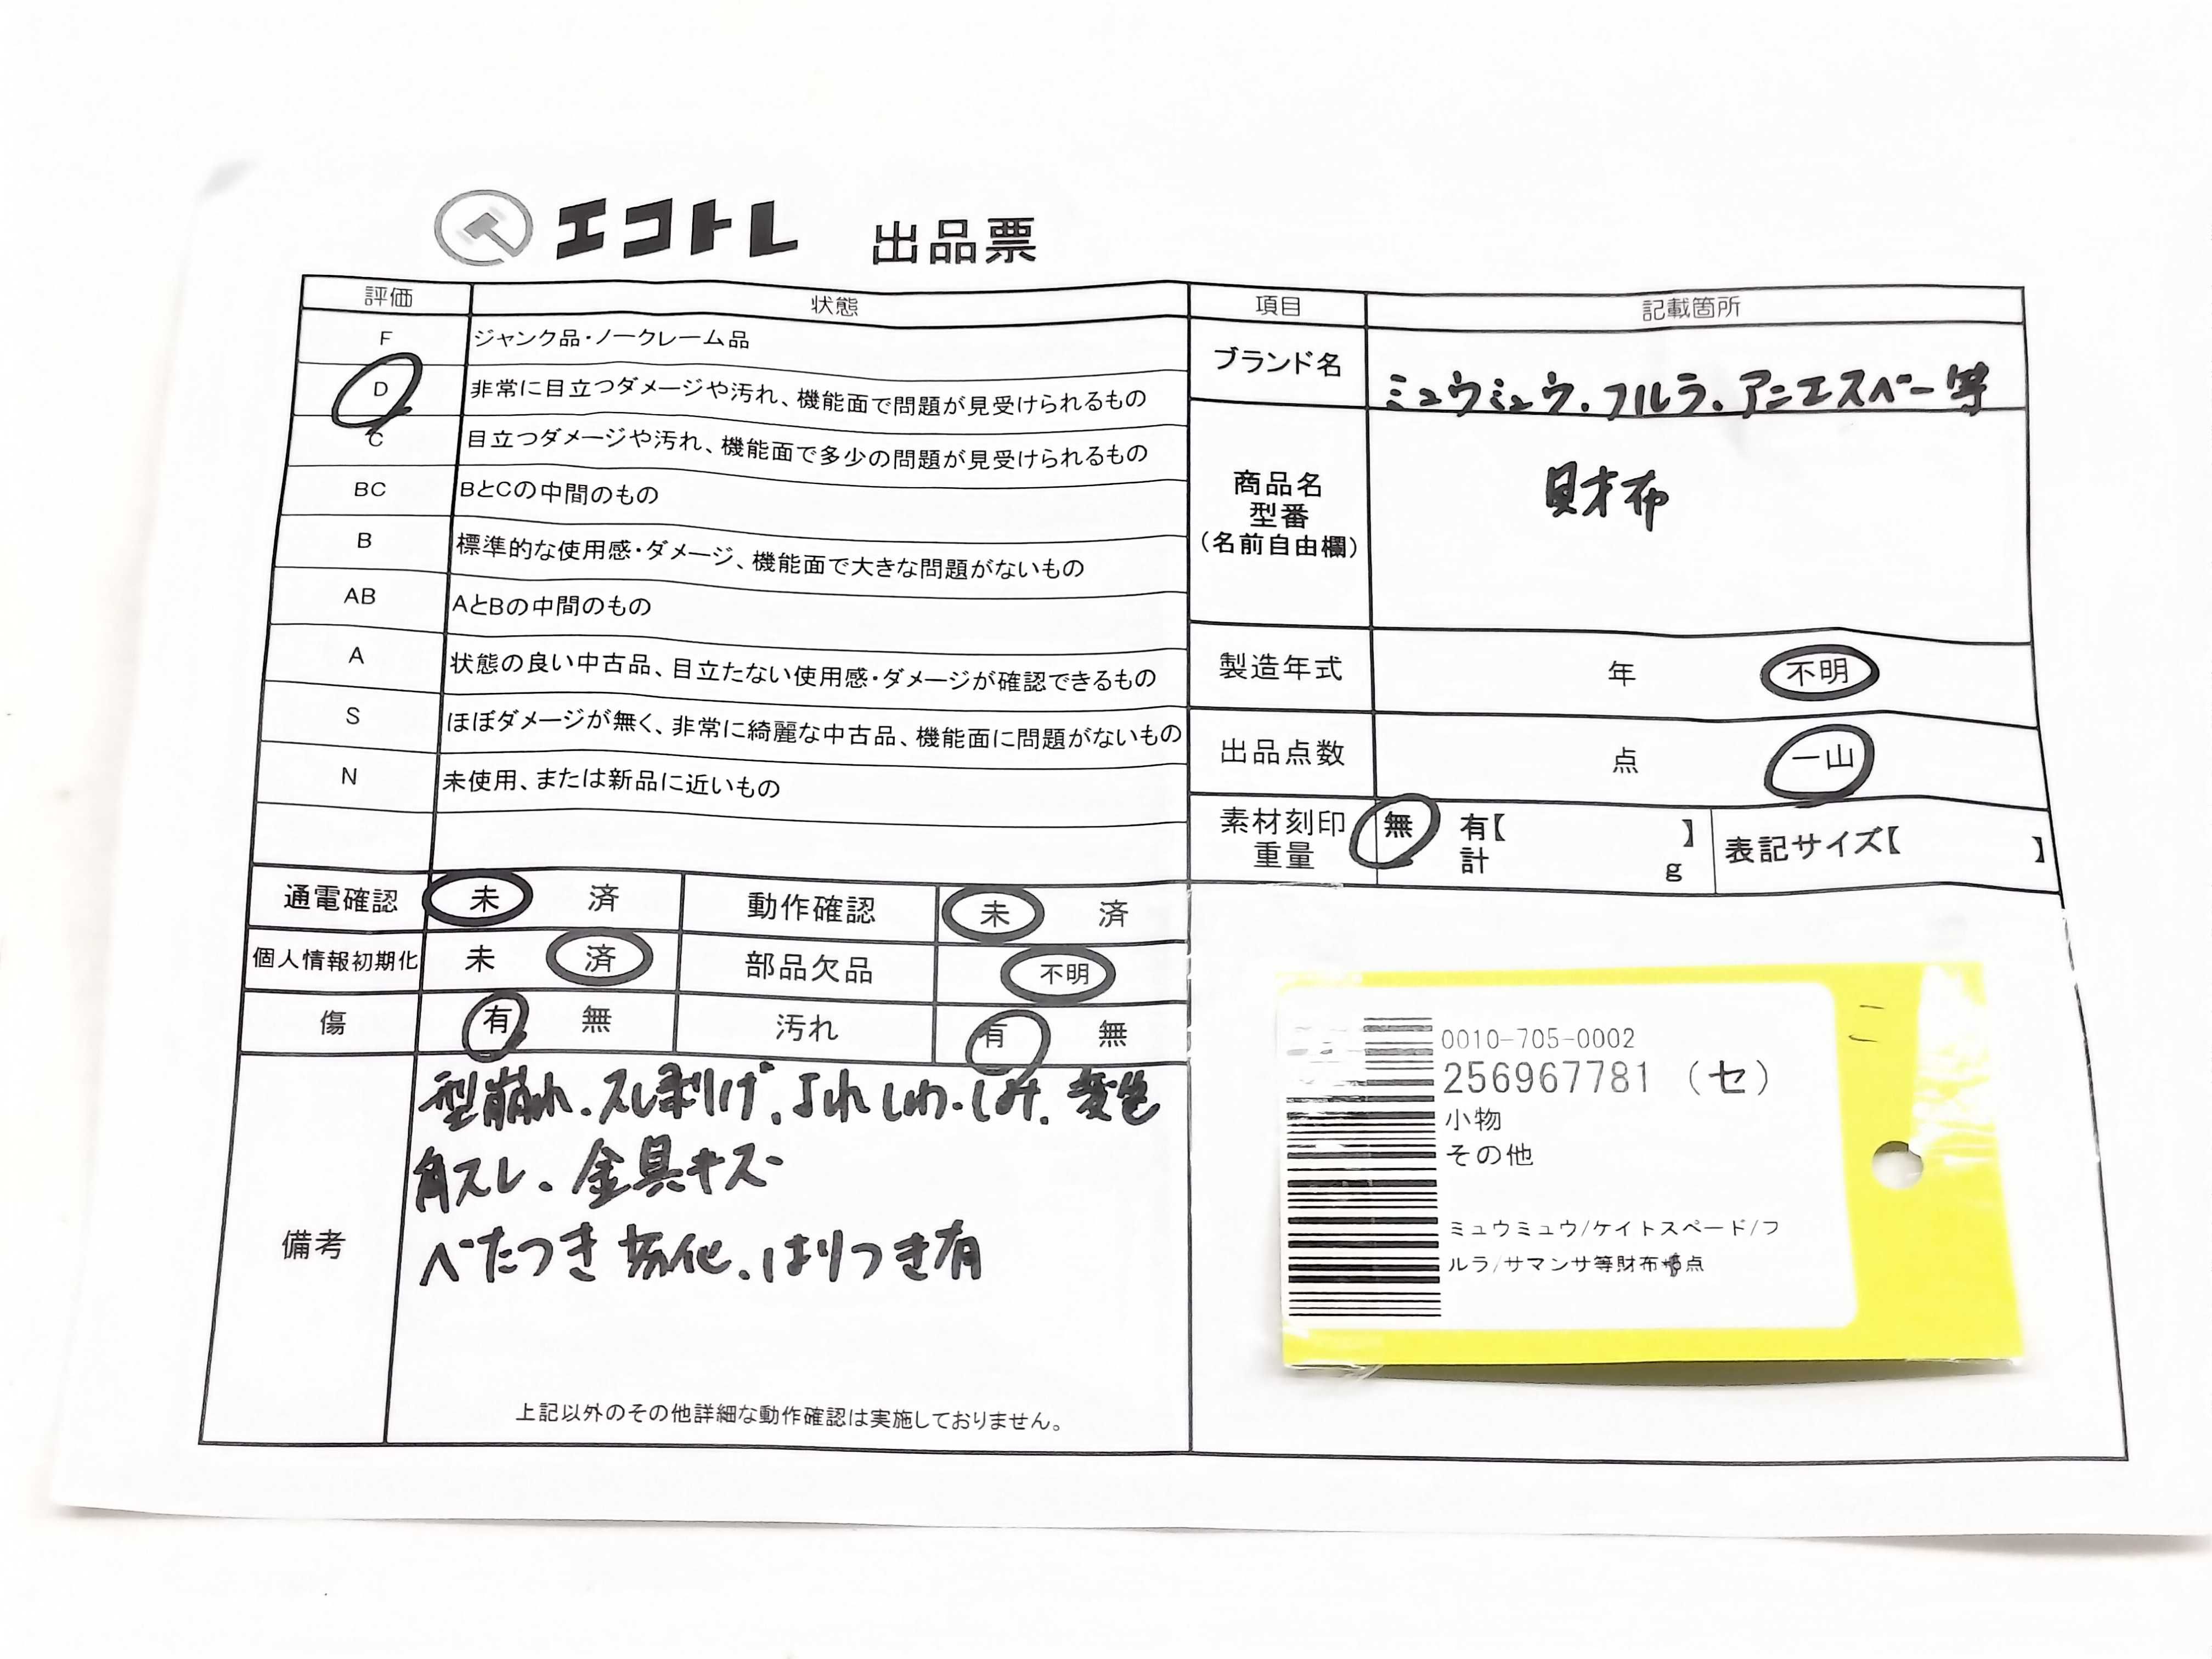 エコトレ 出品票
評価 状態
F ジャンク品・ノークレーム品
D 非常に目立つダメージや汚れ、機能面で問題が見受けられるもの
C 目立つダメージや汚れ、機能面で多少の問題が見受けられるもの
BC BとCの中間のもの
B 標準的な使用感・ダメージ、機能面で大きな問題がないもの
AB AとBの中間のもの
A 状態の良い中古品、目立たない使用感・ダメージが確認できるもの
S ほぼダメージが無く、非常に綺麗な中古品、機能面に問題がないもの
N 未使用、または新品に近いもの
通電確認 未 済 動作確認 未 済
個人情報初期化 未 済 部品欠品 不明
傷 有 無 汚れ 有 無
備考
型崩れ、スレ剥げ、よれしわ・しみ、変色
角スレ、金具キズ
べたつき 劣化、はりつき有
上記以外のその他詳細な動作確認は実施しておりません。
項目 記載箇所
ブランド名 ミュウミュウ、フルラ、アニエスベー等
商品名
型番
(名前自由欄)
財布
製造年式 年 不明
出品点数 点 一山
素材刻印 無 有【 】
重量 計 g
表記サイズ【 】
0010-705-0002
256967781 (セ)
小物
その他
ミュウミュウ/ケイトスペード/フ
ルラ/サマンサ等財布 点